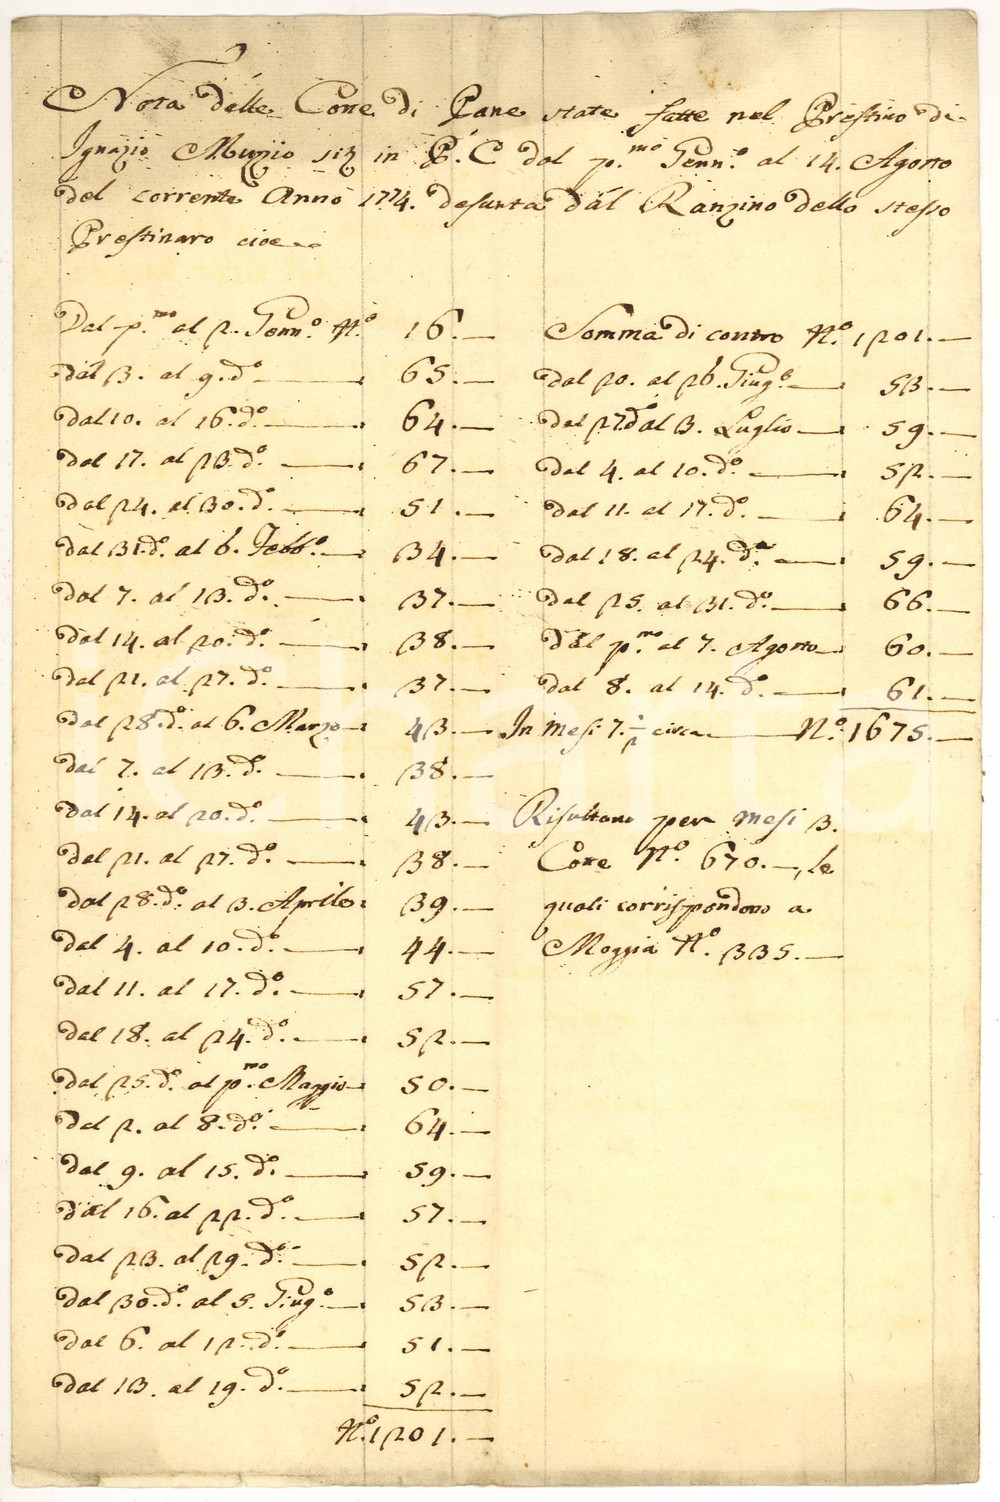 Nota delle Cotte di Pane state fatte nel Prestino di
Ignazio Muzio sit.º in P. C. dal p.mo Genn.º al 14. Agosto
del corrente Anno 1774. desunta dal Ranzino dello stesso
Prestinaro cioe
Dal p.mo al 2. Genn.º N.º 16.—
Dal 3. al 9. d.º — 65.—
Dal 10. al 16. d.º — 64.—
Dal 17. al 23. d.º — 67.—
Dal 24. al 30. d.º — 51.—
Dal 31. d.º al 6. Febb.º — 34.—
Dal 7. al 13. d.º — 37.—
Dal 14. al 20. d.º — 38.—
Dal 21. al 27. d.º — 37.—
Dal 28. d.º al 6. Marzo — 43.—
Dal 7. al 13. d.º — 38.—
Dal 14. al 20. d.º — 43.—
Dal 21. al 27. d.º — 38.—
Dal 28. d.º al 3. Aprile 39.—
Dal 4. al 10. d.º — 44.—
Dal 11. al 17. d.º — 57.—
Dal 18. al 24. d.º — 52.—
Dal 25. d.º al p.mo Maggio — 50.—
Dal 2. al 8. d.º — 64.—
Dal 9. al 15. d.º — 59.—
Dal 16. al 22. d.º — 57.—
Dal 23. al 29. d.º — 52.—
Dal 30. d.º al 5. Giug.º — 53.—
Dal 6. al 12. d.º — 51.—
Dal 13. al 19. d.º — 52.—
N.º 1201.—
Somma di contro N.º 1201.—
Dal 20. al 26. Giug.º — 53.—
Dal 27. d.º al 3. Luglio — 59.—
Dal 4. al 10. d.º — 52.—
Dal 11. al 17. d.º — 64.—
Dal 18. al 24. d.º — 59.—
Dal 25. al 31. d.º — 66.—
Dal p.mo al 7. Agosto — 60.—
Dal 8. al 14. d.º — 61.—
In mesi 7. 1/2 circa — N.º 1675.—
Risultano per mesi 3.
Cotte N.º 670.—, le
quali corrispondono a
Moggia N.º 335.—